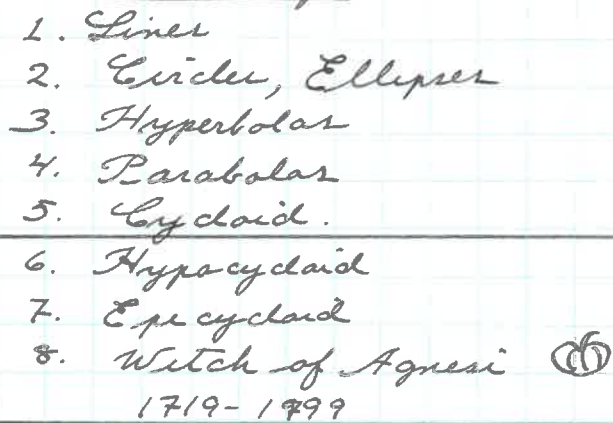 1. Lines
2. Circles, Ellipses
3. Hyperbolas
4. Parabolas
5. Cycloid.
6. Hypocycloid
7. Epicycloid
8. Witch of Agnesi
1719-1799